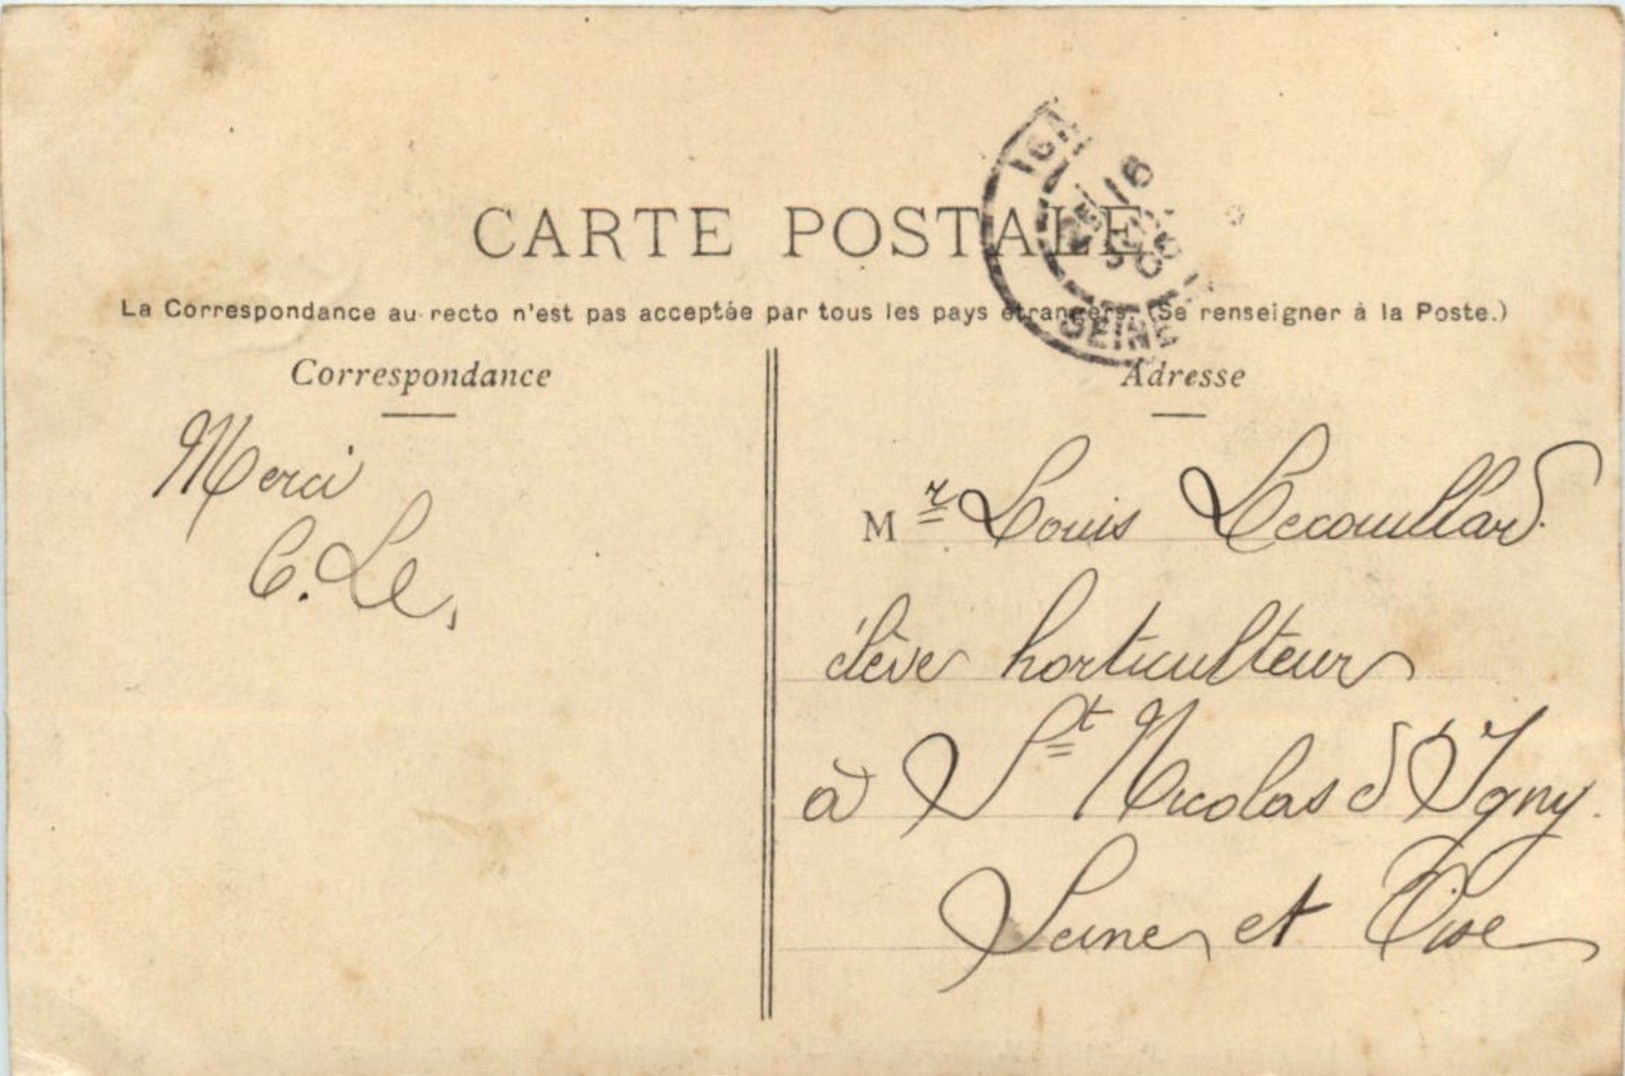 CARTE POSTALE
La Correspondance au recto n'est pas acceptée par tous les pays étrangers. (Se renseigner à la Poste.)
Correspondance
Merci
C. Le,
Adresse
Mr Louis Lecouillard.
élève horticulteur
à St Nicolas d'Igny.
Seine et Oise
SEINE